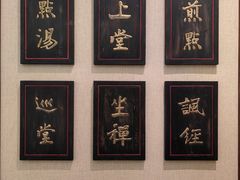 點湯
上堂
煎點
巡堂
坐禪
諷經